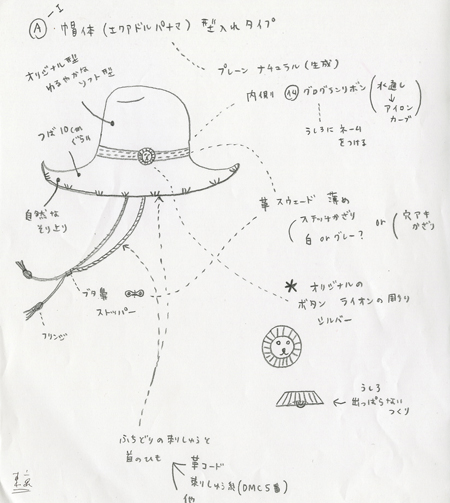 Ⓐ-I ・帽体 (エクアドルパナマ) 型入れタイプ
オリジナル型
ゆるやかな
ソフト型
プレーン ナチュラル (生成)
内側り ⑭ グログランリボン (水通し
↓
アイロン
カーブ)
うしろに ネーム
をつける
つば 10cm
ぐらい
革 スウェード 薄め
(ステッチかざり
白 or グレー?) or (穴アキ
かざり)
自然な
そり上り
* オリジナルの
ボタン ライオンの周り
シルバー
ブタ鼻
ストッパー
フリンジ
うしろ
← 出っぱらない
つくり
ふちどりの刺しゅうと
首のひも
革コード
刺しゅう糸 (DMC5番)
他